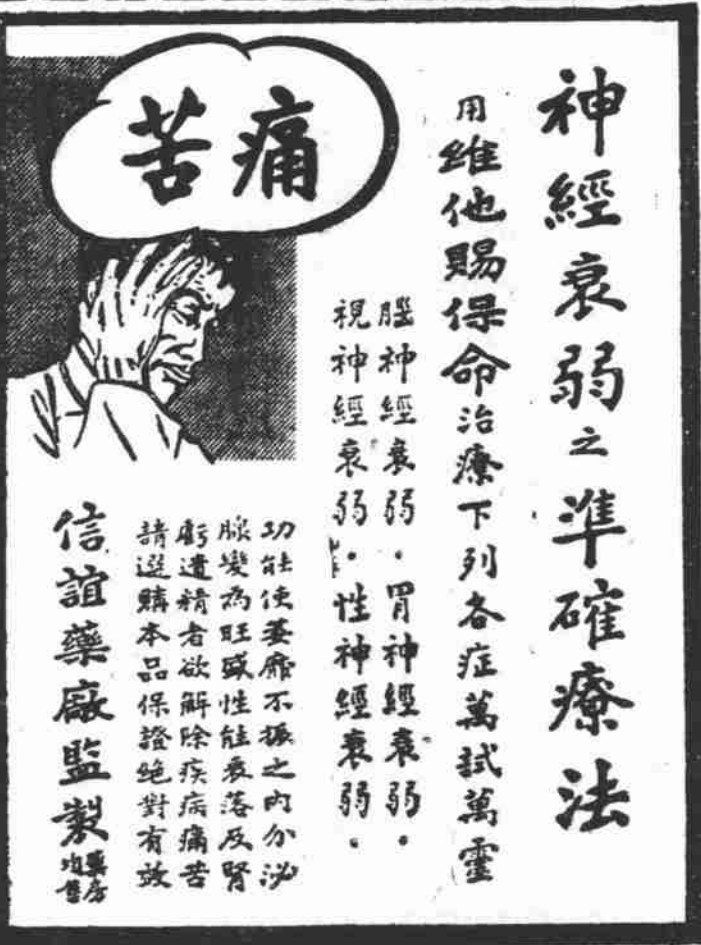 神經衰弱之準確療法
用維他賜保命治療下列各症萬試萬靈
腦神經衰弱．胃神經衰弱．
視神經衰弱．性神經衰弱．
痛苦
功能使萎靡不振之內分泌
腺變為旺盛性能衰落及腎
虧遺精者欲解除疾病痛苦
請選購本品保證絕對有效
信誼藥廠監製
藥房
均售